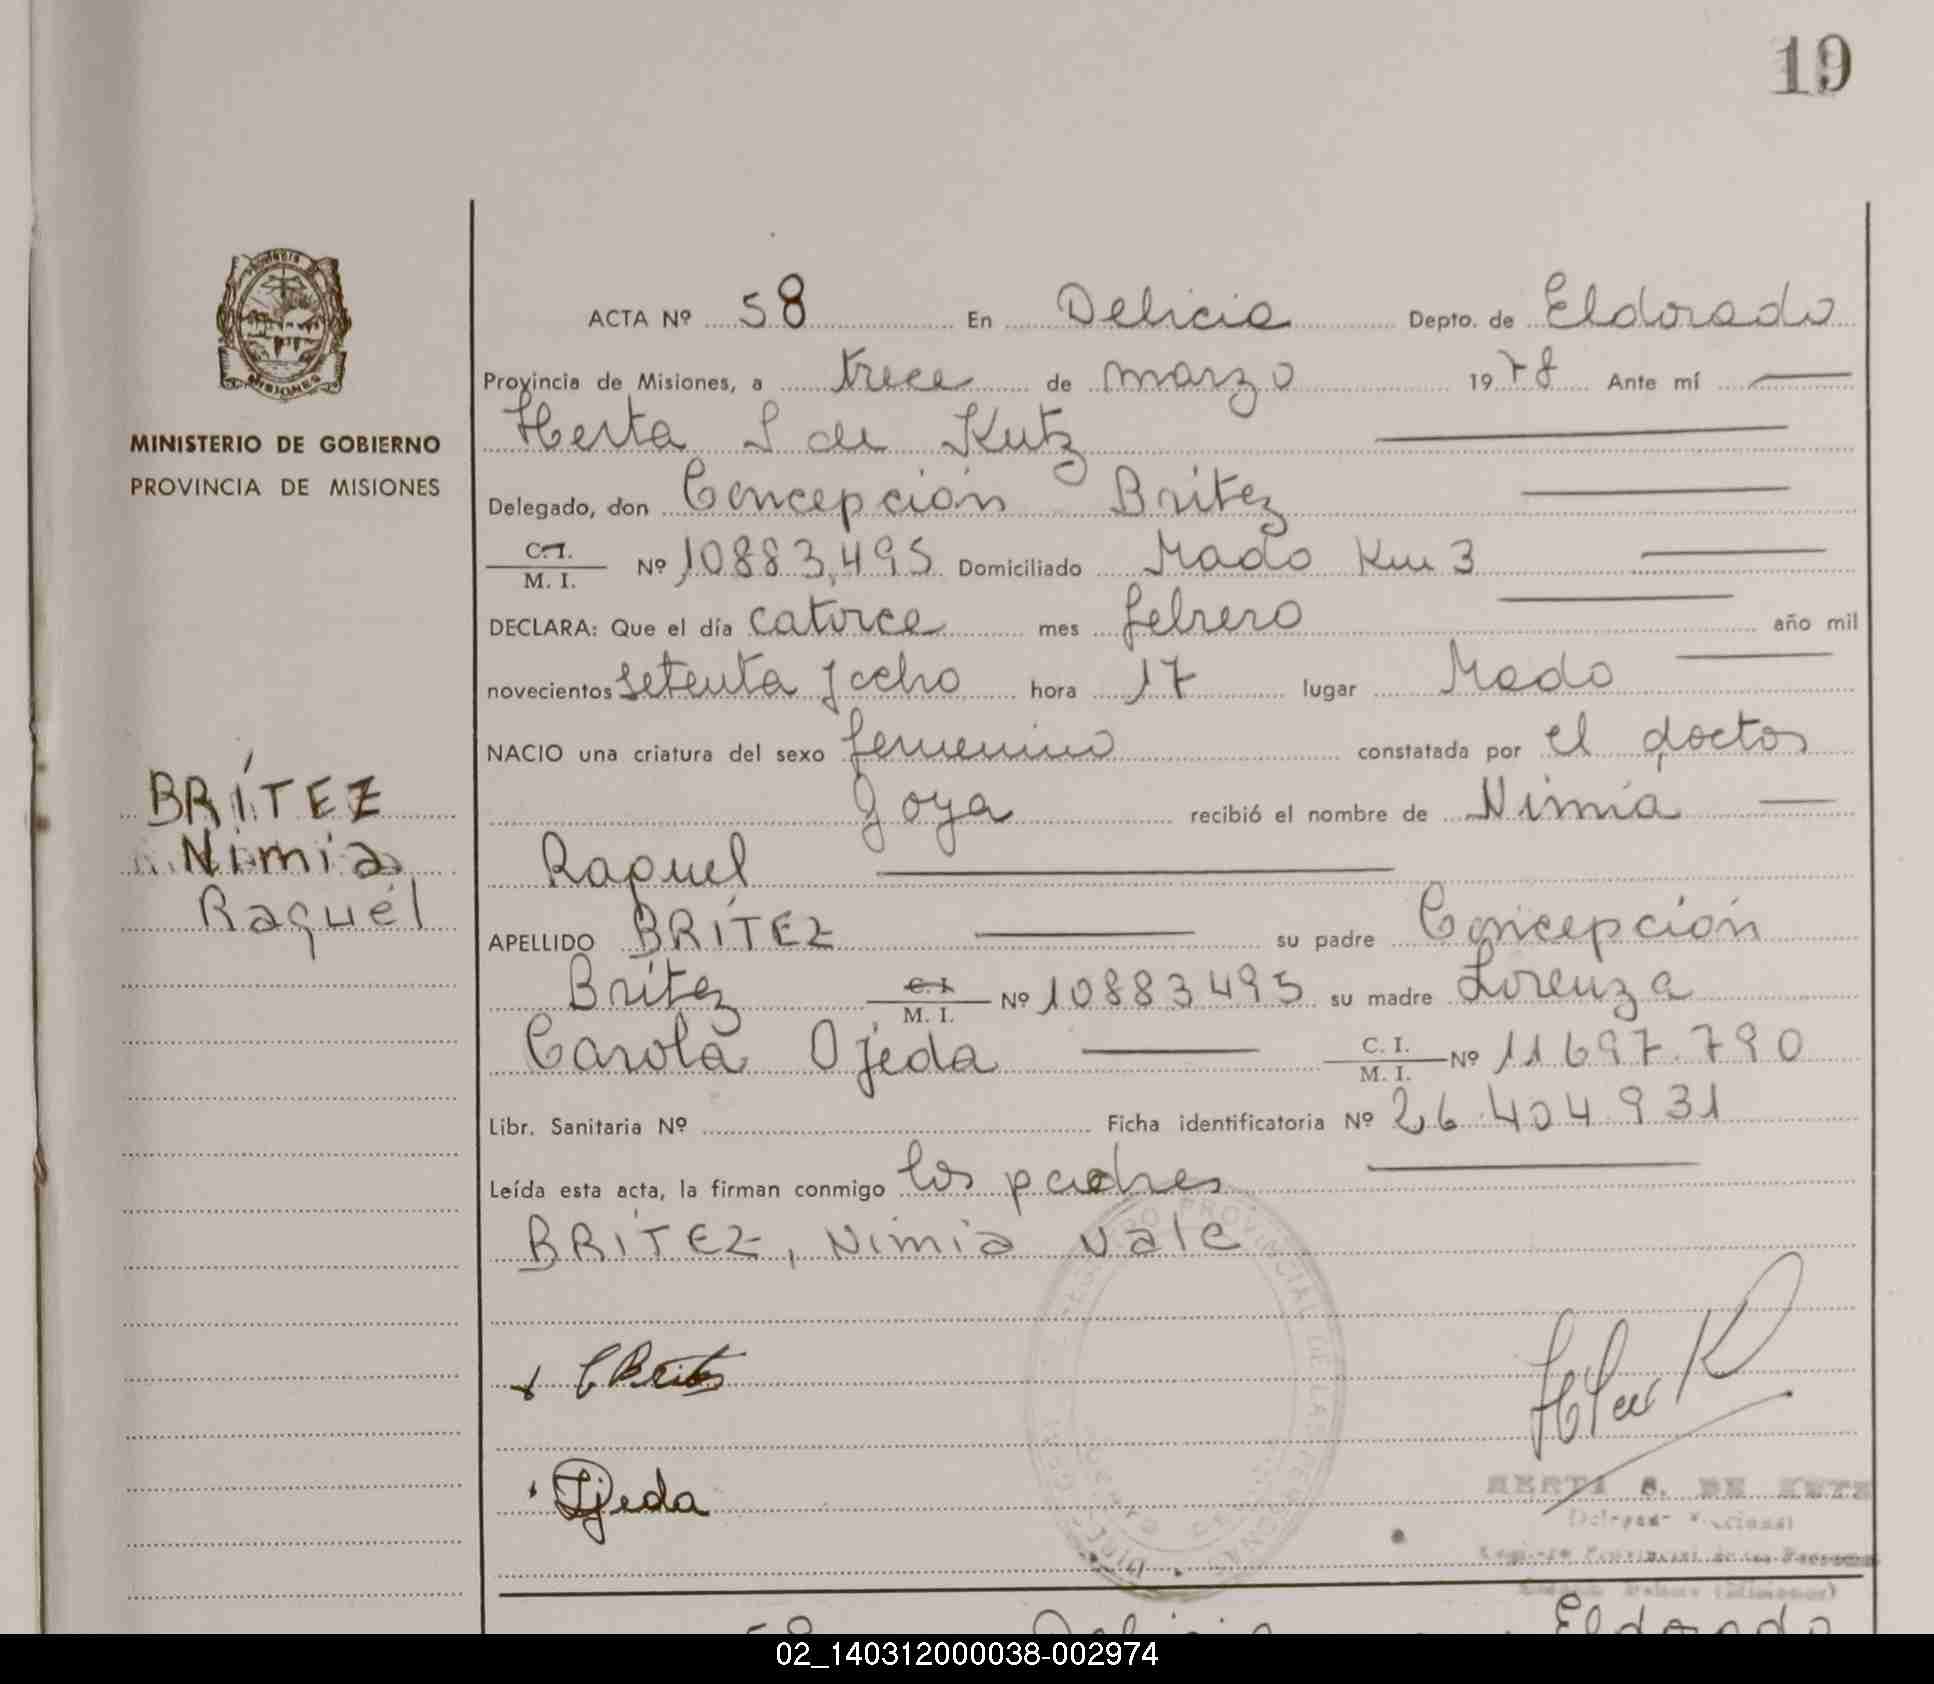 19
PROVINCIA DE
MISIONES
MINISTERIO DE GOBIERNO
PROVINCIA DE MISIONES
BRÍTEZ
Nimia
Raquél
ACTA Nº 58 En Delicia Depto. de Eldorado
Provincia de Misiones, a trece de marzo 1978 Ante mí
Herta S de Kutz
Delegado, don Concepción Brítez
C.I. M. I. Nº 10883,495 Domiciliado Mado Km 3
DECLARA: Que el día catorce mes febrero año mil
novecientos setenta y ocho hora 17 lugar Mado
NACIO una criatura del sexo femenino constatada por el doctor
Goya recibió el nombre de Nimia
Raquel
APELLIDO BRÍTEZ su padre Concepción
Brítez C. I. M. I. Nº 10883495 su madre Lorenza
Carola Ojeda C. I. M. I. Nº 11697.790
Libr. Sanitaria Nº Ficha identificatoria Nº 26.404.931
Leída esta acta, la firman conmigo los padres
BRÍTEZ, Nimia vale
C Britez
Ojeda
HERTA S. DE KUTZ
REGISTRO PROVINCIAL DE LAS PERSONAS
58 Delicia Eldorado
02_140312000038-002974